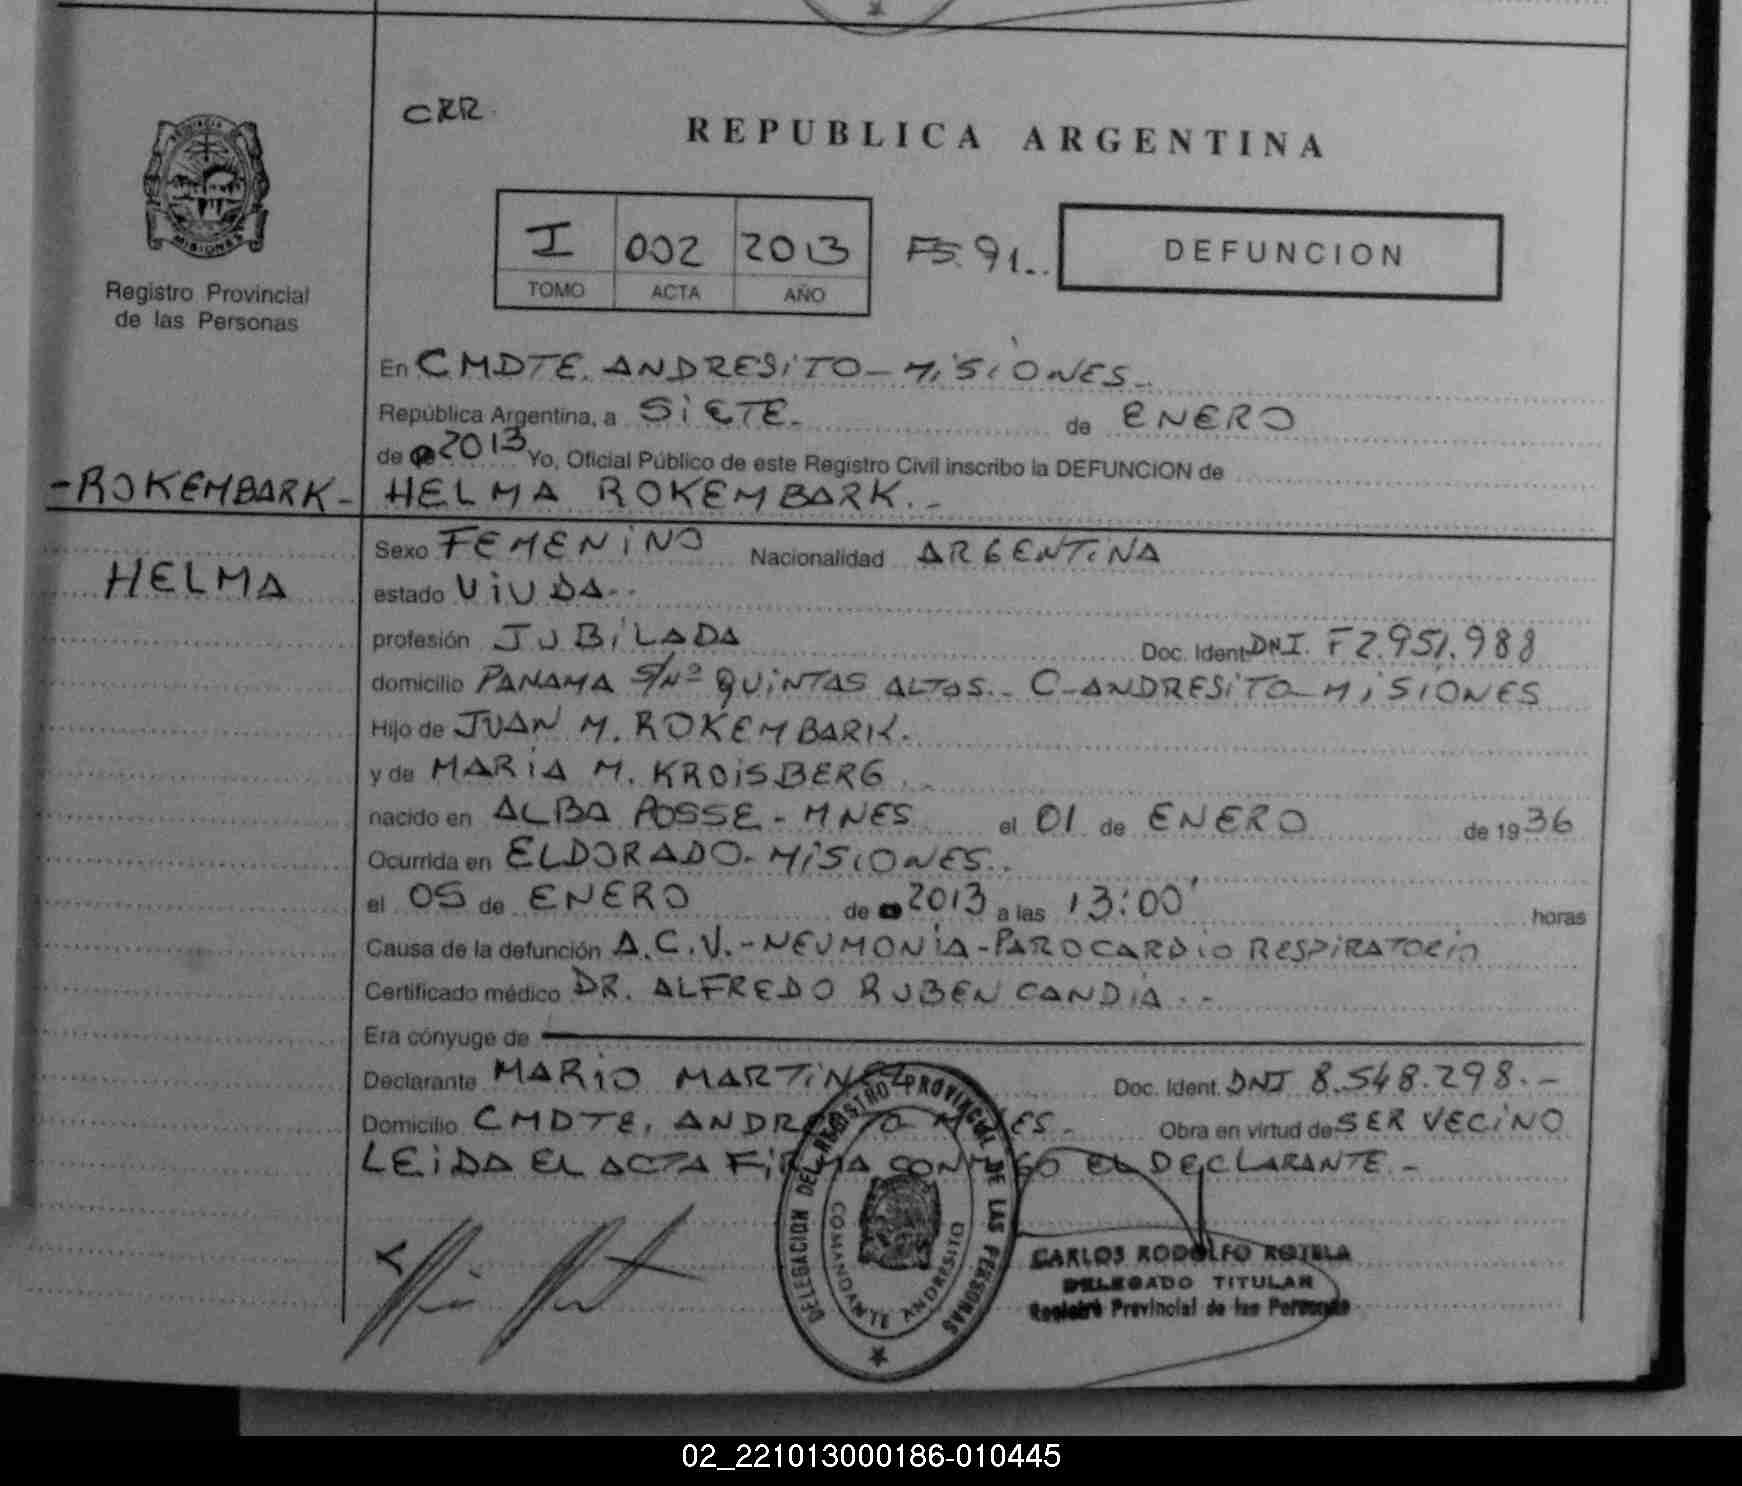 CRR.
REPUBLICA ARGENTINA
PROVINCIA
MISIONES
Registro Provincial
de las Personas
I 002 2013 FS. 91..
TOMO ACTA AÑO
DEFUNCION
En CMDTE. ANDRESITO - MISIONES -
República Argentina, a SIETE - de ENERO
de 2013 Yo, Oficial Público de este Registro Civil inscribo la DEFUNCION de
- ROKEMBARK - HELMA ROKEMBARK. -
HELMA
Sexo FEMENINO Nacionalidad ARGENTINA
estado VIUDA..
profesión JUBILADA Doc. Ident. DNI. F 2.951.988
domicilio PANAMA S/Nº QUINTAS ALTOS.. C-ANDRESITO - MISIONES
Hijo de JUAN M. ROKEMBARK.
y de MARIA M. KROISBERG.
nacido en ALBA POSSE - MNES el 01 de ENERO de 1936
Ocurrida en ELDORADO - MISIONES..
el 05 de ENERO de 2013 a las 13:00' horas
Causa de la defunción A.C.V. - NEUMONIA - PAROCARDIO RESPIRATORIO
Certificado médico DR. ALFREDO RUBEN CANDIA. . -
Era cónyuge de
Declarante MARIO MARTINEZ Doc. Ident. DNI 8.548.298. -
Domicilio CMDTE. ANDRESITO MNES - Obra en virtud de SER VECINO
LEIDA EL ACTA FIRMA CONMIGO EL DECLARANTE. -
DELEGACION DEL REGISTRO PROVINCIAL DE LAS PERSONAS
COMANDANTE ANDRESITO
CARLOS RODOLFO ROTELA
DELEGADO TITULAR
Registro Provincial de las Personas
02_221013000186-010445